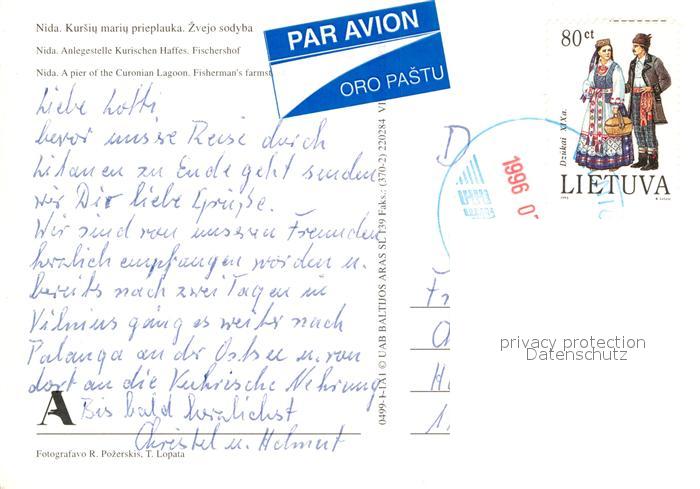 Nida. Kuršių marių prieplauka. Žvejo sodyba
Nida. Anlegestelle Kurischen Haffes. Fischershof
Nida. A pier of the Curonian Lagoon. Fisherman's farmst
PAR AVION
ORO PAŠTU
80 ct
Dzūkai XIXa.
LIETUVA
1996
Liebe Lotti
bevor unsere Reise durch
Litauen zu Ende geht senden
wir Dir liebe Grüße.
Wir sind von unseren Freunden
herzlich empfangen worden u.
bereits nach zwei Tagen in
Vilnius ging es weiter nach
Palanga an der Ostsee u. von
dort an die Kuhrische Nehrung
A Bis bald herzlichst
Christel u. Helmut
Fotografavo R. Požerskis, T. Lopata
0499-1-1A1 © UAB BALTIJOS ARAS SL 139 Faks.: (370-2) 220284
D
Fr
H
1.
privacy protection
Datenschutz